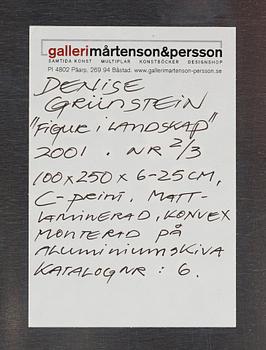 gallerimårtenson&persson
SAMTIDA KONST MULTIPLAR KONSTBÖCKER DESIGNSHOP
Pl 4802 Påarp, 269 94 Båstad. www.gallerimartenson-persson.se
DENISE
GRÜNSTEIN
"FIGUR I LANDSKAP"
2001. NR 2/3
100X250 X 6-25CM,
C-PRINT, MATT-
LAMINERAD, KONVEX
MONTERAD PÅ
ALUMINIUMSKIVA
KATALOGNR: 6.